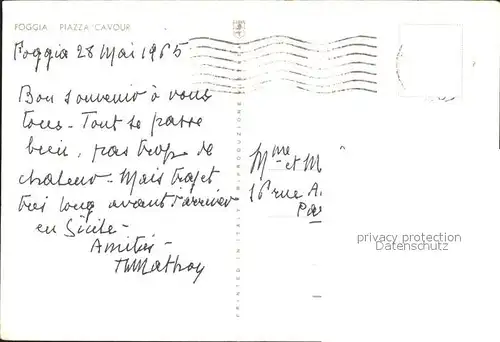 FOGGIA PIAZZA CAVOUR
Foggia 28 Mai 1965
Bon souvenir à vous
tous - Tout se passe
bien, pas trop de
chaleur - Mais trajet
très long avant d'arriver
en Sicile -
Amitiés -
Mme et M
16 rue A
Pa
PRINTED IN ITALY - RIPRODUZIONE
privacy protection
Datenschutz